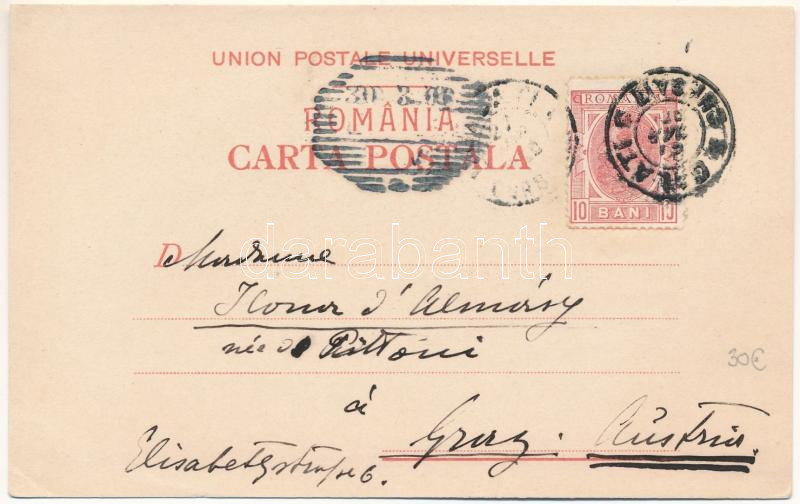 UNION POSTALE UNIVERSELLE
30 3 03
ROMÂNIA
CARTA POSTALA
ROMANIA
10 BANI 10
GALATI
darabanth
Madame
Ilona d'Almásy
née de Pittoni
à
Graz. Austria.
Elisabethstrasse 6.
30€